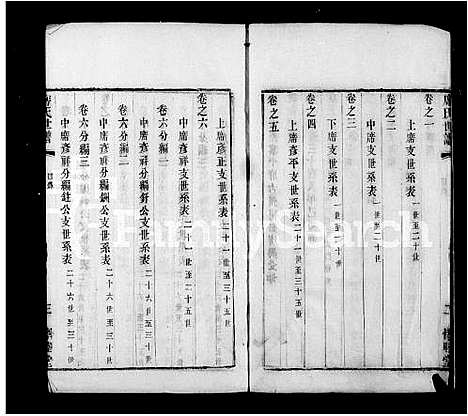 卷之一
上席支世系表 一世至二十世
卷之二
中席支世系表 一世至二十世
卷之三
下席支世系表 一世至二十世
卷之四
上席彥平支世系表 二十一世至三十五世
卷之五
上席彥正支世系表 二十一世至三十五世
卷之六
中席彥祥支世系表 二十一世至二十五世
卷六分編一
中席彥祥分編釪公支世系表 二十六世至三十世
卷六分編二
中席彥祥分編銅公支世系表 二十六世至三十世
卷六分編三
中席彥祥分編鉒公支世系表 二十六世至三十世
席氏世譜
目錄
三
FamilySearch